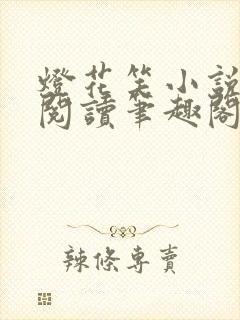 燈花笑小說
閱讀筆趣閣
辣條專賣